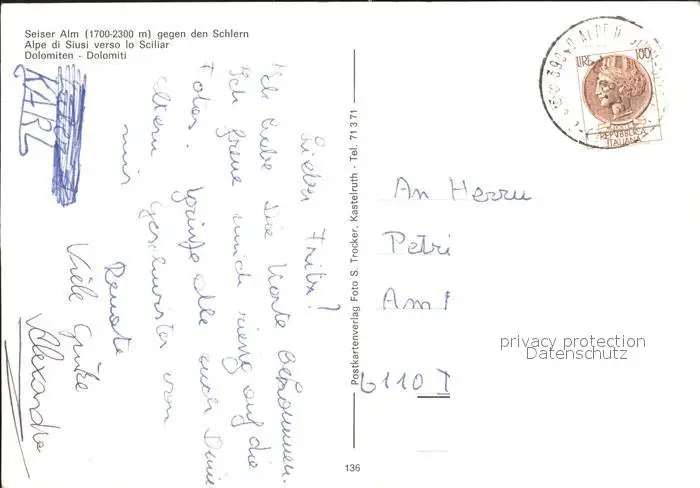 Seiser Alm (1700-2300 m) gegen den Schlern
Alpe di Siusi verso lo Sciliar
Dolomiten - Dolomiti
KARL
Lieber Fritz!
Ich habe die Karte bekommen.
Ich freue mich riesig auf die
Fotos. Grüße alle auch Deine
Eltern Geschwister von
mir
Renate
Viele Grüße
Alexandra
Postkartenverlag Foto S. Trocker, Kastelruth - Tel. 71371
136
39040 ALPE D
LIRE 100
REPVBBLICA
ITALIANA
An Herrn
Petri
Am
6110
privacy protection
Datenschutz